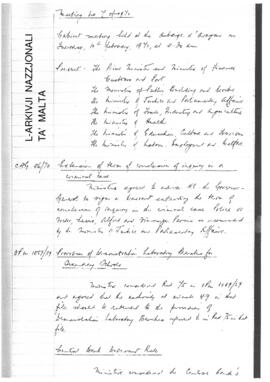 Meeting No 7 of 1970
Cabinet meeting held at the Auberge d'Aragon on
Tuesday, 10th February, 1970, at 9.30 am
Present: The Prime Minister and Minister of Finance
Customs and Port
The Minister of Public Building and Works
The Minister of Justice and Parliamentary Affairs
The Minister of Trade, Industry and Agriculture
The Minister of Health
The Minister of Education, Culture and Tourism
The Minister of Labour, Employment and Welfare
L-ARKIVJI NAZZJONALI
TA' MALTA
Extension of term of conclusion of inquiry in a
criminal case
Ministers agreed to advise HE the Governor-
General to sign a warrant extending the term of
conclusion of inquiry in the criminal case Police vs
and as recommended
by the Minister of Justice and Parliamentary Affairs.
Provision of Demonstration Laboratory Benches for
Secondary Schools
Ministers considered
and agreed that the authority at minute
file should be extended to the provision of
Demonstration Laboratory Benches referred to in that
file.
Central Bank Discount Rate
Ministers considered the Central Bank's